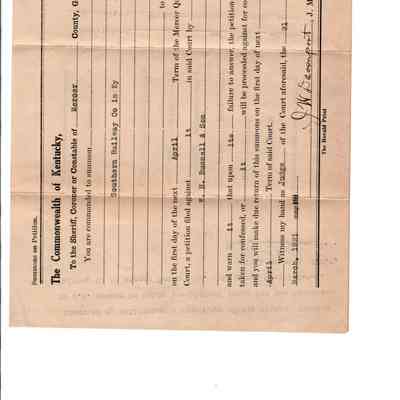 Summons on Petition.
The Commonwealth of Kentucky,
To the Sheriff, Coroner or Constable of Mercer County, G
You are commanded to summon
Southern Railway Co in Ky
to
on the first day of the next April Term of the Mercer Qu
Court, a petition filed against it in said Court by
&. Son
and warn it that upon its failure to answer, the petition
taken for confessed, or it will be proceeded against for co
and you will make due return of this summons on the first day of next
April Term of said Court.
Witness my hand as Judge of the Court aforesaid, the 21
March, 1921
J. M
The Herald Print